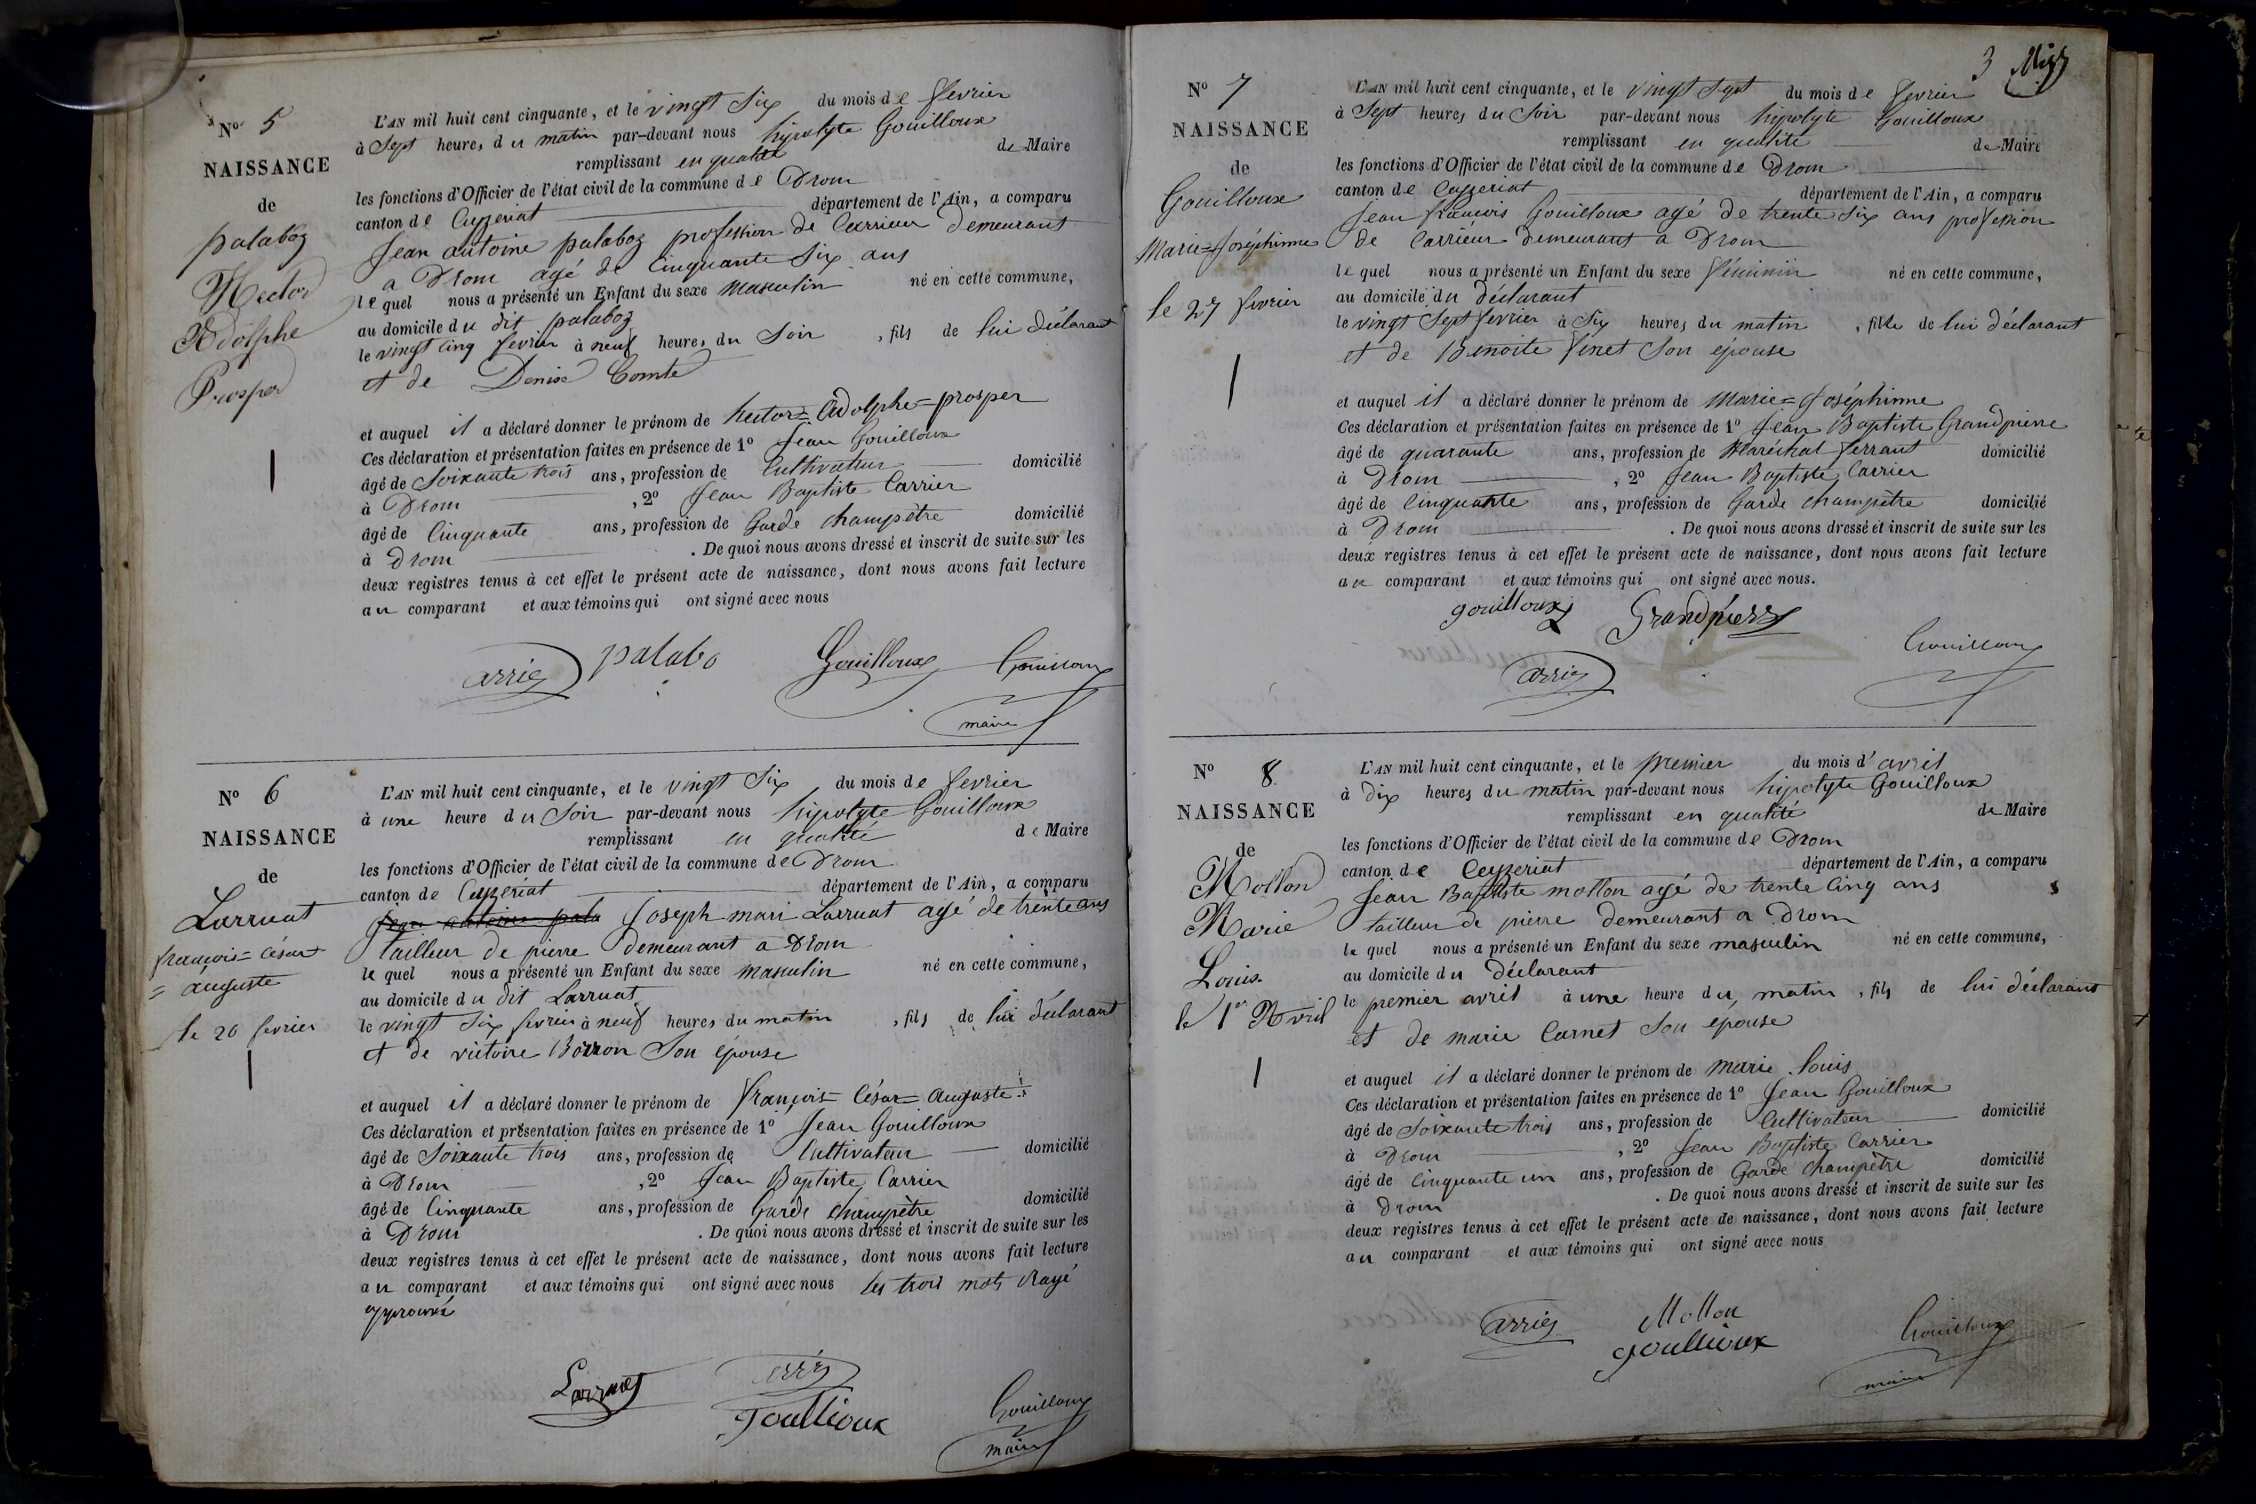 N° 5
NAISSANCE
de
palaboz
Hector
Adolphe
Prosper
L'AN mil huit cent cinquante, et le vingt Six du mois de fevrier
à Sept heures du matin par-devant nous hipolyte Gouilloux
remplissant en qualité de Maire
les fonctions d'Officier de l'état civil de la commune de Drom
canton de Ceyzeriat département de l'Ain, a comparu
Jean antoine palaboz profession de Carrieur demeurant
a Drom agé de Cinquante Six ans
le quel nous a présenté un Enfant du sexe masculin né en cette commune,
au domicile du dit palaboz
le vingt cinq fevrier à neuf heures du Soir , fils de lui déclarant
et de Denise Comte
et auquel il a déclaré donner le prénom de hector=Adolphe=prosper
Ces déclaration et présentation faites en présence de 1° Jean Gouilloux
âgé de Soixante trois ans, profession de Cultivateur domicilié
à Drom , 2° Jean Baptiste Carrier
âgé de Cinquante ans, profession de Garde champêtre domicilié
à Drom . De quoi nous avons dressé et inscrit de suite sur les
deux registres tenus à cet effet le présent acte de naissance, dont nous avons fait lecture
au comparant et aux témoins qui ont signé avec nous
Carrier palabo Gouilloux Gouilloux
maire
N° 6
NAISSANCE
de
Larruat
françois=César
=auguste
le 26 fevrier
L'AN mil huit cent cinquante, et le vingt Six du mois de fevrier
à une heure du Soir par-devant nous hipolyte Gouilloux
remplissant en qualité de Maire
les fonctions d'Officier de l'état civil de la commune de Drom
canton de Ceyzeriat département de l'Ain, a comparu
Jean antoine pala Joseph mari Larruat agé de trente ans
tailleur de pierre demeurant a Drom
le quel nous a présenté un Enfant du sexe masculin né en cette commune,
au domicile du dit Larruat
le vingt Six fevrier à neuf heures du matin , fils de lui déclarant
et de victoire Borron Son épouse
et auquel il a déclaré donner le prénom de françois=César=Auguste
Ces déclaration et présentation faites en présence de 1° Jean Gouilloux
âgé de Soixante trois ans, profession de Cultivateur domicilié
à Drom , 2° Jean Baptiste Carrier
âgé de Cinquante ans, profession de Garde champêtre domicilié
à Drom . De quoi nous avons dressé et inscrit de suite sur les
deux registres tenus à cet effet le présent acte de naissance, dont nous avons fait lecture
au comparant et aux témoins qui ont signé avec nous les trois mots Rayé
approuvé
Larruat
Goullioux Gouilloux
maire
3
N° 7
NAISSANCE
de
Gouilloux
Marie=Joséphinne
le 27 fevrier
L'AN mil huit cent cinquante, et le vingt Sept du mois de fevrier
à Sept heures du Soir par-devant nous hipolyte Gouilloux
remplissant en qualité de Maire
les fonctions d'Officier de l'état civil de la commune de Drom
canton de Ceyzeriat département de l'Ain, a comparu
Jean françois Gouilloux agé de trente Six ans profession
de Carriéur demeurant a Drom
le quel nous a présenté un Enfant du sexe féminin né en cette commune,
au domicile du déclarant
le vingt Sept fevrier à Six heures du matin , fille de lui déclarant
et de Benoite finet Son épouse
et auquel il a déclaré donner le prénom de Marie=Joséphinne
Ces déclaration et présentation faites en présence de 1° Jean Baptiste Grandpierre
âgé de quarante ans, profession de Maréchal ferrant domicilié
à Drom , 2° Jean Baptiste Carrier
âgé de Cinquante ans, profession de Garde champêtre domicilié
à Drom . De quoi nous avons dressé et inscrit de suite sur les
deux registres tenus à cet effet le présent acte de naissance, dont nous avons fait lecture
au comparant et aux témoins qui ont signé avec nous.
gouilloux Grandpierre
Carrier Gouilloux
N° 8
NAISSANCE
de
Mollon
Marie
Louis
le 1er Avril
L'AN mil huit cent cinquante, et le premier du mois d'avril
à dix heures du matin par-devant nous hipolyte Gouilloux
remplissant en qualité de Maire
les fonctions d'Officier de l'état civil de la commune de Drom
canton de Ceyzeriat département de l'Ain, a comparu
Jean Baptiste mollon agé de trente Cinq ans
tailleur de pierre demeurant a Drom
le quel nous a présenté un Enfant du sexe masculin né en cette commune,
au domicile du déclarant
le premier avril à une heure du matin , fils de lui déclarant
et de marie Carnet Son épouse
et auquel il a déclaré donner le prénom de marie Louis
Ces déclaration et présentation faites en présence de 1° Jean Gouilloux
âgé de Soixante trois ans, profession de Cultivateur domicilié
à Drom , 2° Jean Baptiste Carrier
âgé de Cinquante un ans, profession de Garde champêtre domicilié
à Drom . De quoi nous avons dressé et inscrit de suite sur les
deux registres tenus à cet effet le présent acte de naissance, dont nous avons fait lecture
au comparant et aux témoins qui ont signé avec nous
Carrier Mollon Gouilloux
goullioux
maire